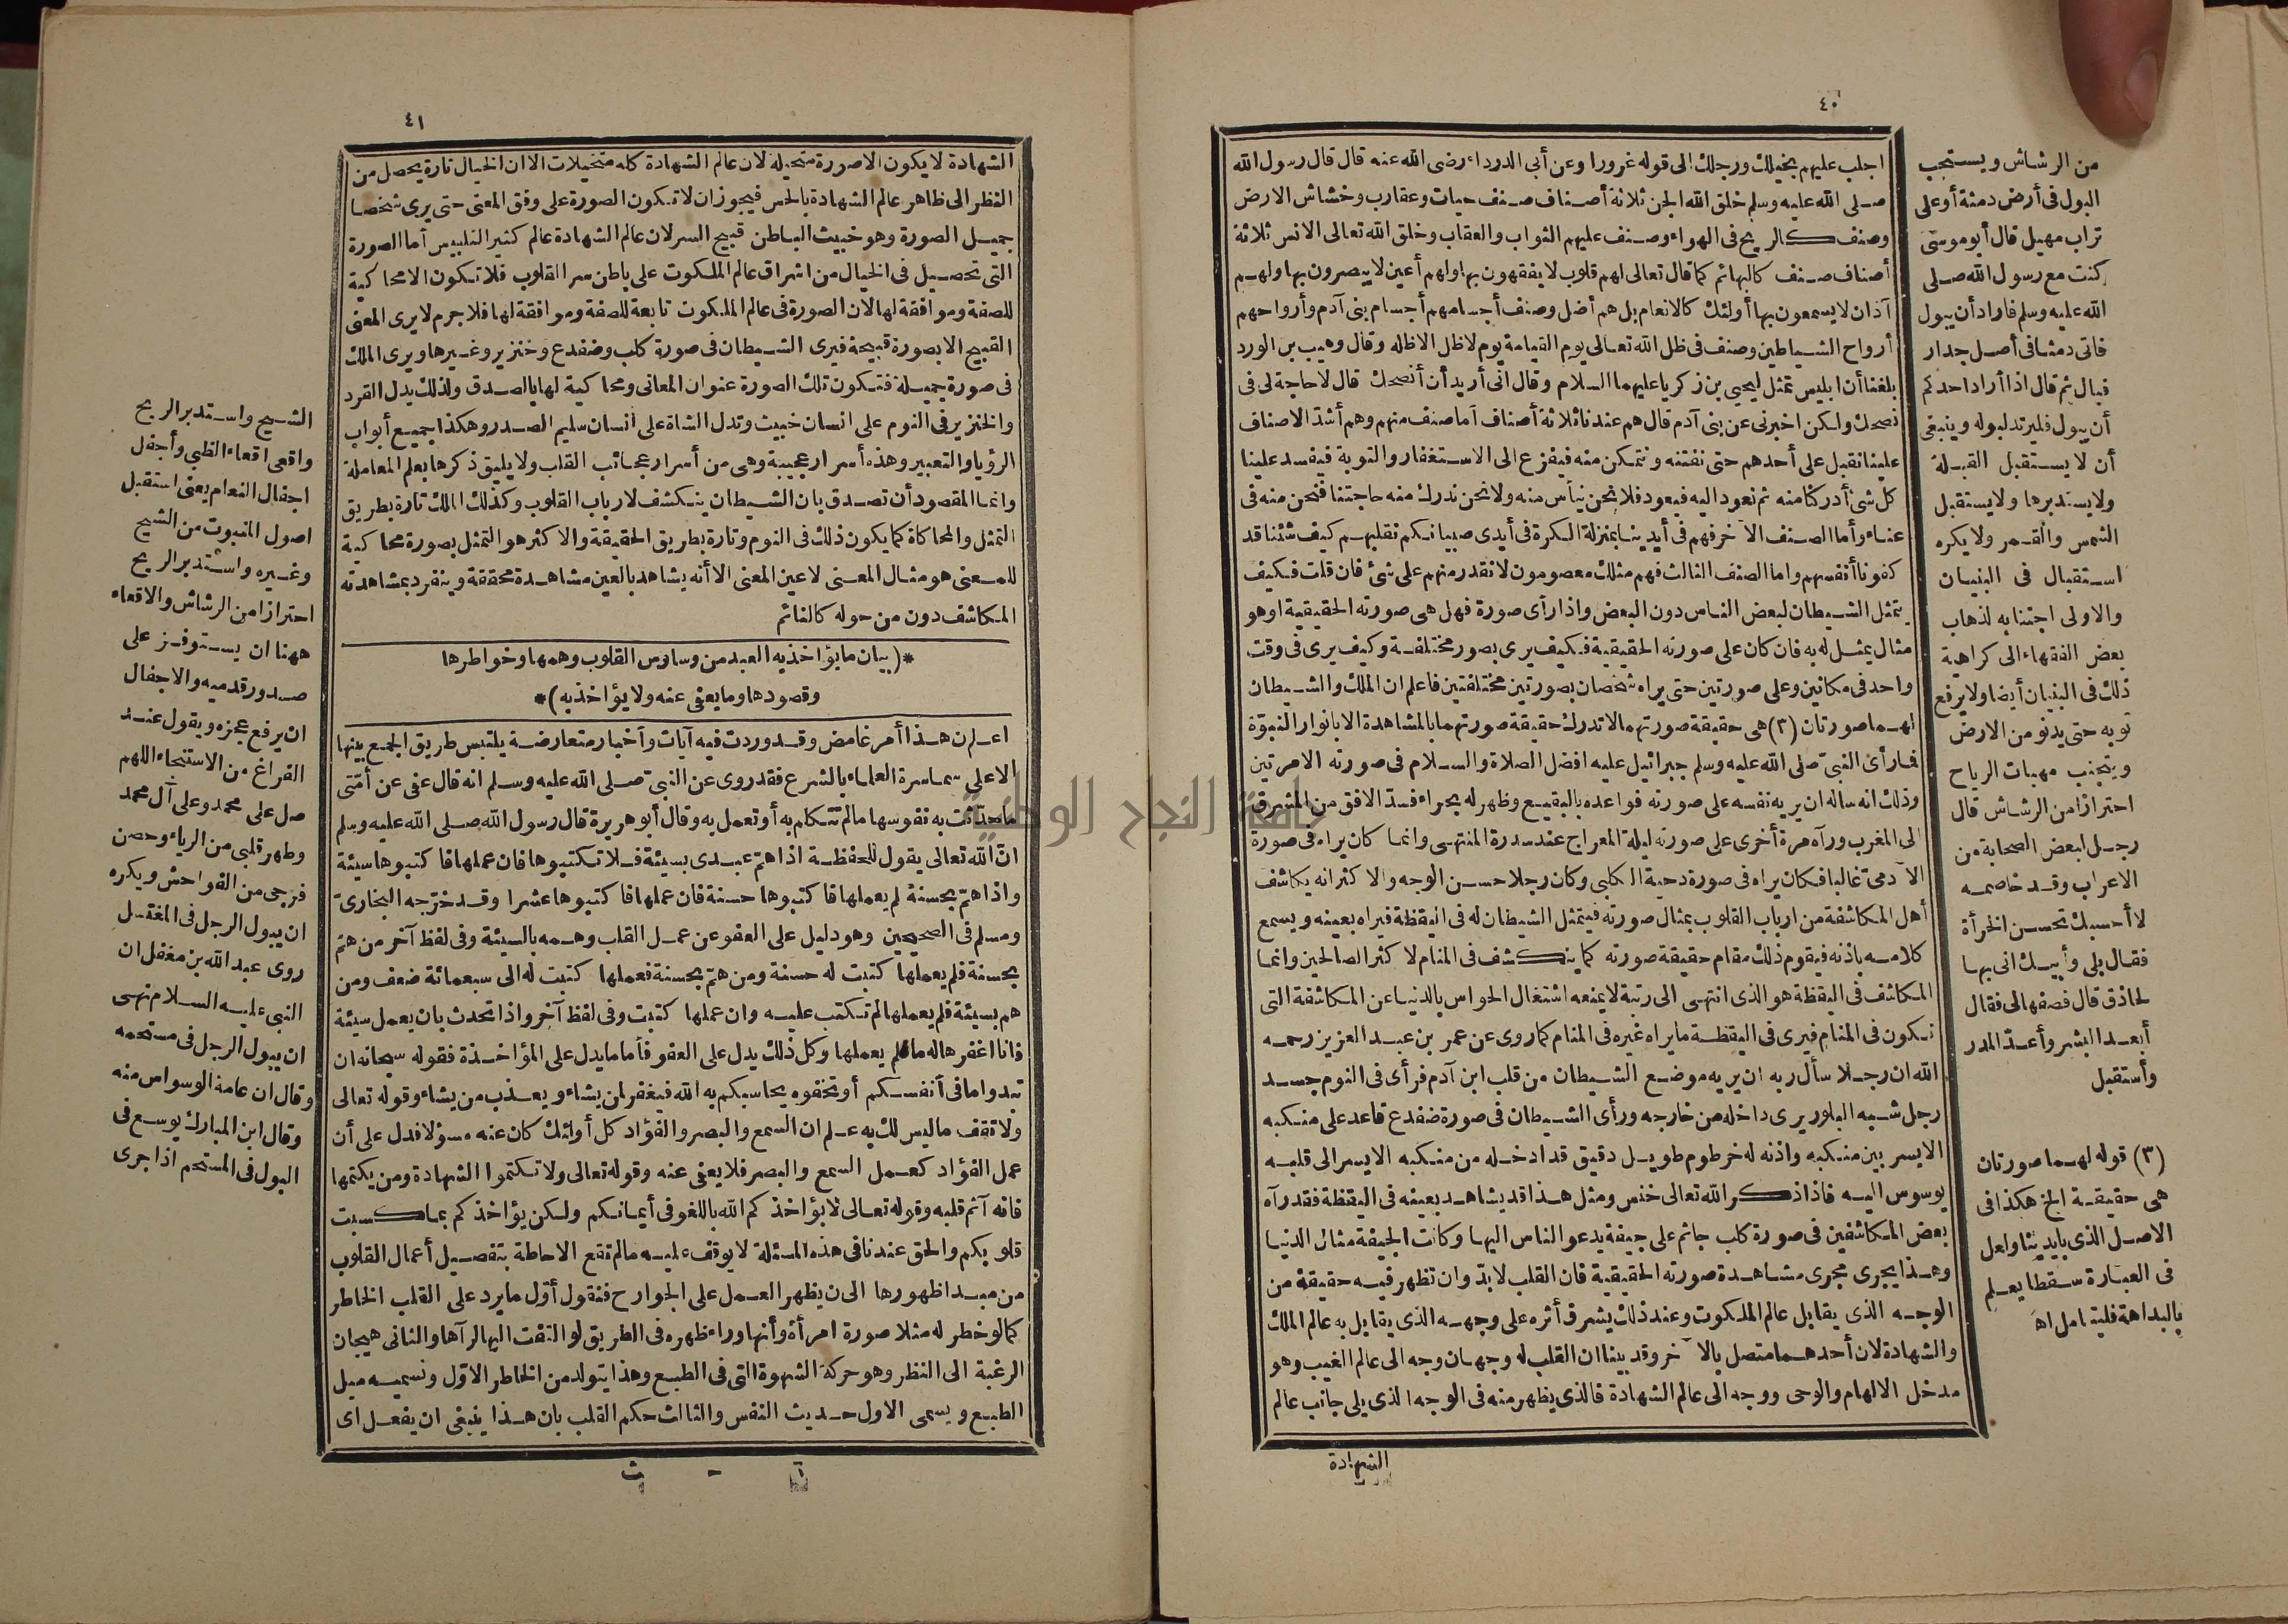 ٤٠
اجلب عليهم بخيلك ورجلك الى قوله غرورا وعن أبي الدرداء رضى الله عنه قال قال رسول الله
صلى الله عليه وسلم خلق الله الجن ثلاثة أصناف صنف حيات وعقارب وخشاش الارض
وصنف كالريح فى الهواء وصنف عليهم الثواب والعقاب وخلق الله تعالى الانس ثلاثة
أصناف صنف كالبهائم كما قال تعالى لهم قلوب لا يفقهون بها ولهم أعين لا يبصرون بها ولهم
آذان لا يسمعون بها أولئك كالانعام بل هم أضل وصنف أجسامهم أجسام بنى آدم وأرواحهم
أرواح الشياطين وصنف فى ظل الله تعالى يوم القيامة يوم لا ظل الا ظله وقال وهيب بن الورد
بلغنا أن ابليس تمثل ليحيى بن زكريا عليهما السلام وقال انى أريد أن أنصحك قال لا حاجة لى فى
نصحك ولكن اخبرنى عن بنى آدم قال هم عندنا ثلاثة أصناف أما صنف منهم وهم أشد الاصناف
علينا نقبل على أحدهم حتى نفتنه ونتمكن منه فيفزع الى الاستغفار والتوبة فيفسد علينا
كل شئ أدركنا منه ثم نعود اليه فيعود فلا نحن نيأس منه ولا نحن ندرك منه حاجتنا فنحن منه فى
عناء وأما الصنف الآخر فهم فى أيدينا بمنزلة الكرة فى أيدى صبيانكم نقلبهم كيف شئنا قد
كفونا أنفسهم واما الصنف الثالث فهم مثلك معصومون لا نقدر منهم على شئ فان قلت فكيف
يتمثل الشيطان لبعض الناس دون البعض واذا رأى صورة فهل هى صورته الحقيقية او هو
مثال يمثل له به فان كان على صورته الحقيقية فكيف يرى بصور مختلفة وكيف يرى فى وقت
واحد فى مكانين وعلى صورتين حتى يراه شخصان بصورتين مختلفتين فاعلم ان الملك والشيطان
لهما صورتان (٣) هى حقيقة صورتهما لا تدرك حقيقة صورتهما بالمشاهدة الا بانوار النبوّة
فما رأى النبى صلى الله عليه وسلم جبرائيل عليه افضل الصلاة والسلام فى صورته الا مرتين
وذلك انه سأله ان يريه نفسه على صورته فواعده بالبقيع وظهر له بحراء فسدّ الافق من المشرق
الى المغرب ورآه مرة أخرى على صورته ليلة المعراج عند سدرة المنتهى وانما كان يراه فى صورة
الآدمىّ غالبا فكان يراه فى صورة دحية الكلبى وكان رجلا حسن الوجه والاكثر انه يكاشف
أهل المكاشفة من ارباب القلوب بمثال صورته فيتمثل الشيطان له فى اليقظة فيراه بعينه ويسمع
كلامه باذنه فيقوم ذلك مقام حقيقة صورته كما ينكشف فى المنام لاكثر الصالحين وانما
المكاشف فى اليقظة هو الذى انتهى الى رتبة لا يمنعه اشتغال الحواس بالدنيا عن المكاشفة التى
تكون فى المنام فيرى فى اليقظة ما يراه غيره فى المنام كما روى عن عمر بن عبد العزيز رحمه
الله ان رجلا سأل ربه ان يريه موضع الشيطان من قلب ابن آدم فرأى فى النوم جسد
رجل شبيه البلور يرى داخله من خارجه ورأى الشيطان فى صورة ضفدع قاعد على منكبه
الايسر بين منكبه واذنه له خرطوم طويل دقيق قد ادخله من منكبه الايسر الى قلبه
يوسوس اليه فاذا ذكر الله تعالى خنس ومثل هذا قد يشاهد بعينه فى اليقظة فقد رآه
بعض المكاشفين فى صورة كلب جاثم على جيفة يدعو الناس اليها وكانت الجيفة مثال الدنيا
وهذا يجرى مجرى مشاهدة صورته الحقيقية فان القلب لا بدّ وان تظهر فيه حقيقة من
الوجه الذى يقابل عالم الملكوت وعند ذلك يشرق أثره على وجهه الذى يقابل به عالم الملك
والشهادة لان أحدهما متصل بالآخر وقد بينا ان القلب له وجهان وجه الى عالم الغيب وهو
مدخل الالهام والوحى ووجه الى عالم الشهادة فالذى يظهر منه فى الوجه الذى يلى جانب عالم
الشهادة
من الرشاش ويستحب
البول فى أرض دمثة أو على
تراب مهيل قال أبو موسى
كنت مع رسول الله صلى
الله عليه وسلم فاراد أن يبول
فاتى دمثا فى أصل جدار
فبال ثم قال اذا أراد احدكم
أن يبول فليرتد لبوله وينبغى
أن لا يستقبل القبلة
ولا يستدبرها ولا يستقبل
الشمس والقمر ولا يكره
استقبال فى البنيان
والاولى اجتنابه لذهاب
بعض الفقهاء الى كراهية
ذلك فى البنيان أيضا ولا يرفع
ثوبه حتى يدنو من الارض
ويتجنب مهبات الرياح
احترازا من الرشاش قال
رجل لبعض الصحابة من
الاعراب وقد خاصمه
لا أحسبك تحسن الخرأة
فقال بلى وأبيك انى بها
لحاذق قال فصفها لى فقال
أبعد البشر وأعدّ المدر
وأستقبل
(٣) قوله لهما صورتان
هى حقيقة الخ هكذا فى
الاصل الذى بايدينا ولعل
فى العبارة سقطا يعلم
بالبداهة فليتامل اه
٤١
الشهادة لا يكون الا صورة متخيلة لان عالم الشهادة كله متخيلات الا ان الخيال تارة يحصل من
النظر الى ظاهر عالم الشهادة بالحس فيجوز ان لا تكون الصورة على وفق المعنى حتى يرى شخصا
جميل الصورة وهو خبيث الباطن قبيح السر لان عالم الشهادة عالم كثير التلبيس أما الصورة
التى تحصل فى الخيال من اشراق عالم الملكوت على باطن سر القلوب فلا تكون الا محاكية
للصفة وموافقة لها لان الصورة فى عالم الملكوت تابعة للصفة وموافقة لها فلا جرم لا يرى المعنى
القبيح الا بصورة قبيحة فيرى الشيطان فى صورة كلب وضفدع وخنزير وغيرها ويرى الملك
فى صورة جميلة فتكون تلك الصورة عنوان المعانى ومحاكية لها بالصدق ولذلك يدل القرد
والخنزير فى النوم على انسان خبيث وتدل الشاة على انسان سليم الصدر وهكذا جميع أبواب
الرؤيا والتعبير وهذه أسرار عجيبة وهى من أسرار عجائب القلب ولا يليق ذكرها بعلم المعاملة
وانما المقصود أن تصدق بان الشيطان ينكشف لارباب القلوب وكذلك الملك تارة بطريق
التمثل والمحاكاة كما يكون ذلك فى النوم وتارة بطريق الحقيقة والاكثر هو التمثل بصورة محاكية
للمعنى هو مثال المعنى لا عين المعنى الا أنه يشاهد بالعين مشاهدة محققة وينفرد بمشاهدته
المكاشف دون من حوله كالنائم
*(بيان ما يؤاخذ به العبد من وساوس القلوب وهمها وخواطرها
وقصودها وما يعفى عنه ولا يؤاخذ به)*
اعلم ن هذا أمر غامض وقد وردت فيه آيات وأخبار متعارضة يلتبس طريق الجمع بينها
الا على سماسرة العلماء بالشرع فقد روى عن النبىّ صلى الله عليه وسلم انه قال عفى عن أمّتى
ما حدّثت به نفوسها ما لم تتكلم به أو تعمل به وقال أبو هريرة قال رسول الله صلى الله عليه وسلم
انّ الله تعالى يقول للحفظة اذا همّ عبدى بسيئة فلا تكتبوها فان عملها فاكتبوها سيئة
واذا همّ بحسنة لم يعملها فاكتبوها حسنة فان عملها فاكتبوها عشرا وقد خرّجه البخارىّ
ومسلم فى الصحيحين وهو دليل على العفو عن عمل القلب وهمه بالسيئة وفى لفظ آخر من همّ
بحسنة فلم يعملها كتبت له حسنة ومن همّ بحسنة فعملها كتبت له الى سبعمائة ضعف ومن
هم بسيئة فلم يعملها لم تكتب عليه وان عملها كتبت وفى لفظ آخر واذا تحدث بان يعمل سيئة
فانا اغفرها له ما لم يعملها وكل ذلك يدل على العفو فأما ما يدل على المؤاخذة فقوله سبحانه ان
تبدوا ما فى أنفسكم أو تخفوه يحاسبكم به الله فيغفر لمن يشاء ويعذب من يشاء وقوله تعالى
ولا تقف ما ليس لك به علم ان السمع والبصر والفؤاد كل أولئك كان عنه مسؤلا فدل على أن
عمل الفؤاد كعمل السمع والبصر فلا يعفى عنه وقوله تعالى ولا تكتموا الشهادة ومن يكتمها
فانه آثم قلبه وقوله تعالى لا يؤاخذكم الله باللغو فى أيمانكم ولكن يؤاخذكم بما كسبت
قلوبكم والحق عندنا فى هذه المسئلة لا يوقف عليه ما لم تقع الاحاطة بتفصيل أعمال القلوب
من مبدا ظهورها الى ن يظهر العمل على الجوارح فنقول أوّل ما يرد على القلب الخاطر
كما لو خطر له مثلا صورة امرأة وأنها وراء ظهره فى الطريق لو التفت اليها لرآها والثانى هيجان
الرغبة الى النظر وهو حركة الشهوة التى فى الطبع وهذا يتولد من الخاطر الاوّل ونسميه ميل
الطبع ويسمى الاول حديث النفس والثالث حكم القلب بان هذا ينبغى ان يفعل اى
٦ - ث
الشيح واستدبر الريح
واقعى اقعاء الظبى وأجفل
اجفال النعام يعنى استقبل
اصول النبوت من الشيح
وغيره واستدبر الريح
احترازا من الرشاش والاقعاء
ههنا ان يستوفز على
صدور قدميه والاجفال
ان يرفع عجزه ويقول عند
الفراغ من الاستنجاء اللهم
صل على محمد وعلى آل محمد
وطهر قلبى من الرياء وحصن
فرجى من الفواحش ويكره
ان يبول الرجل فى المغتسل
روى عبد الله بن مغفل ان
النبى عليه السلام نهى
ان يبول الرجل فى مستحمه
وقال ان عامة الوسواس منه
وقال ابن المبارك يوسع فى
البول فى المستحم اذا جرى
جامعة النجاح الوطنية